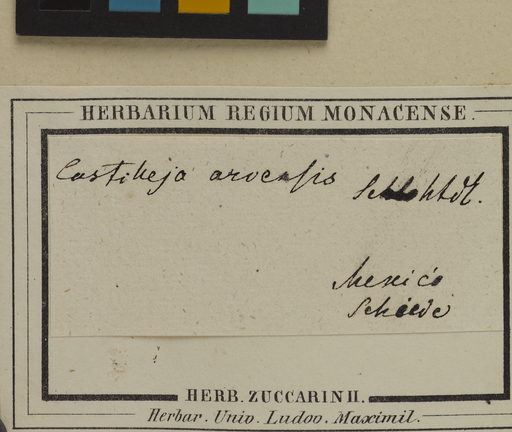 HERBARIUM REGIUM MONACENSE.
Castilleja arvensis Schlchtdl.
Mexico
Schiede
HERB. ZUCCARINII.
Herbar. Univ. Ludov. Maximil.